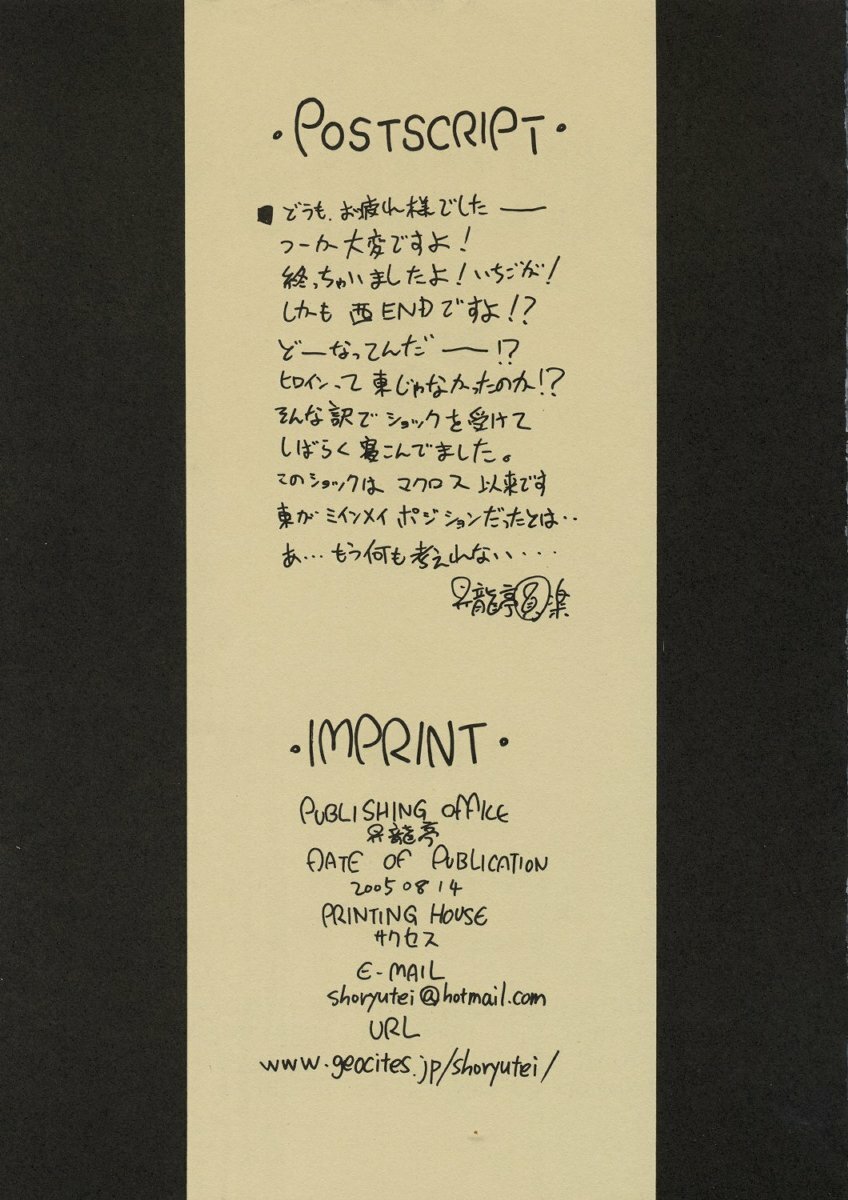 ・POSTSCRIPT・
■どうも、お疲れ様でした――
つーか大変ですよ!
終っちゃいましたよ!いちごが!
しかも西ENDですよ!?
どーなってんだ――!?
ヒロインって東じゃなかったのか!?
そんな訳でショックを受けて
しばらく寝こんでました。
このショックはマクロス以来です
東がミインメイポジションだったとは‥
あ…もう何も考えれない・・・
昇龍亭圓楽
・IMPRINT・
PUBLISHING OFFICE
昇龍亭
DATE OF PUBLICATION
2005 08 14
PRINTING HOUSE
サクセス
E-MAIL
shoryutei@hotmail.com
URL
www.geocites.jp/shoryutei/